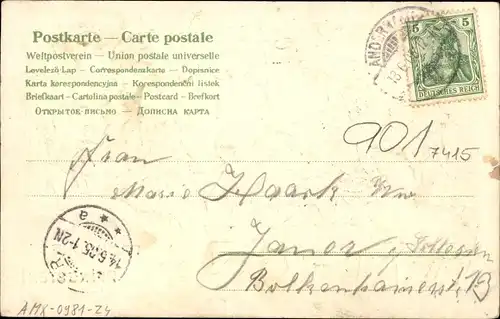 Postkarte — Carte postale
Weltpostverein — Union postale universelle
Levelező-Lap — Correspondenzkarte — Dopisnice
Karta korespondencyjna — Korespondenční listek
Briefkaart — Cartolina postale — Postcard — Brefkort
Открытое письмо — Дописна карта
5 5
DEUTSCHES REICH
901 7415
Frau
Marie Haack
Janor
Bolkenhainerstr. 13
14.6.05.1-2N
a
AMX-0981-Z4